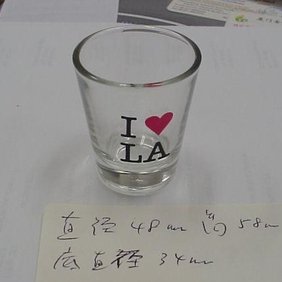 I ♥
LA
直径 48mm 高 58m
底直径 34mm